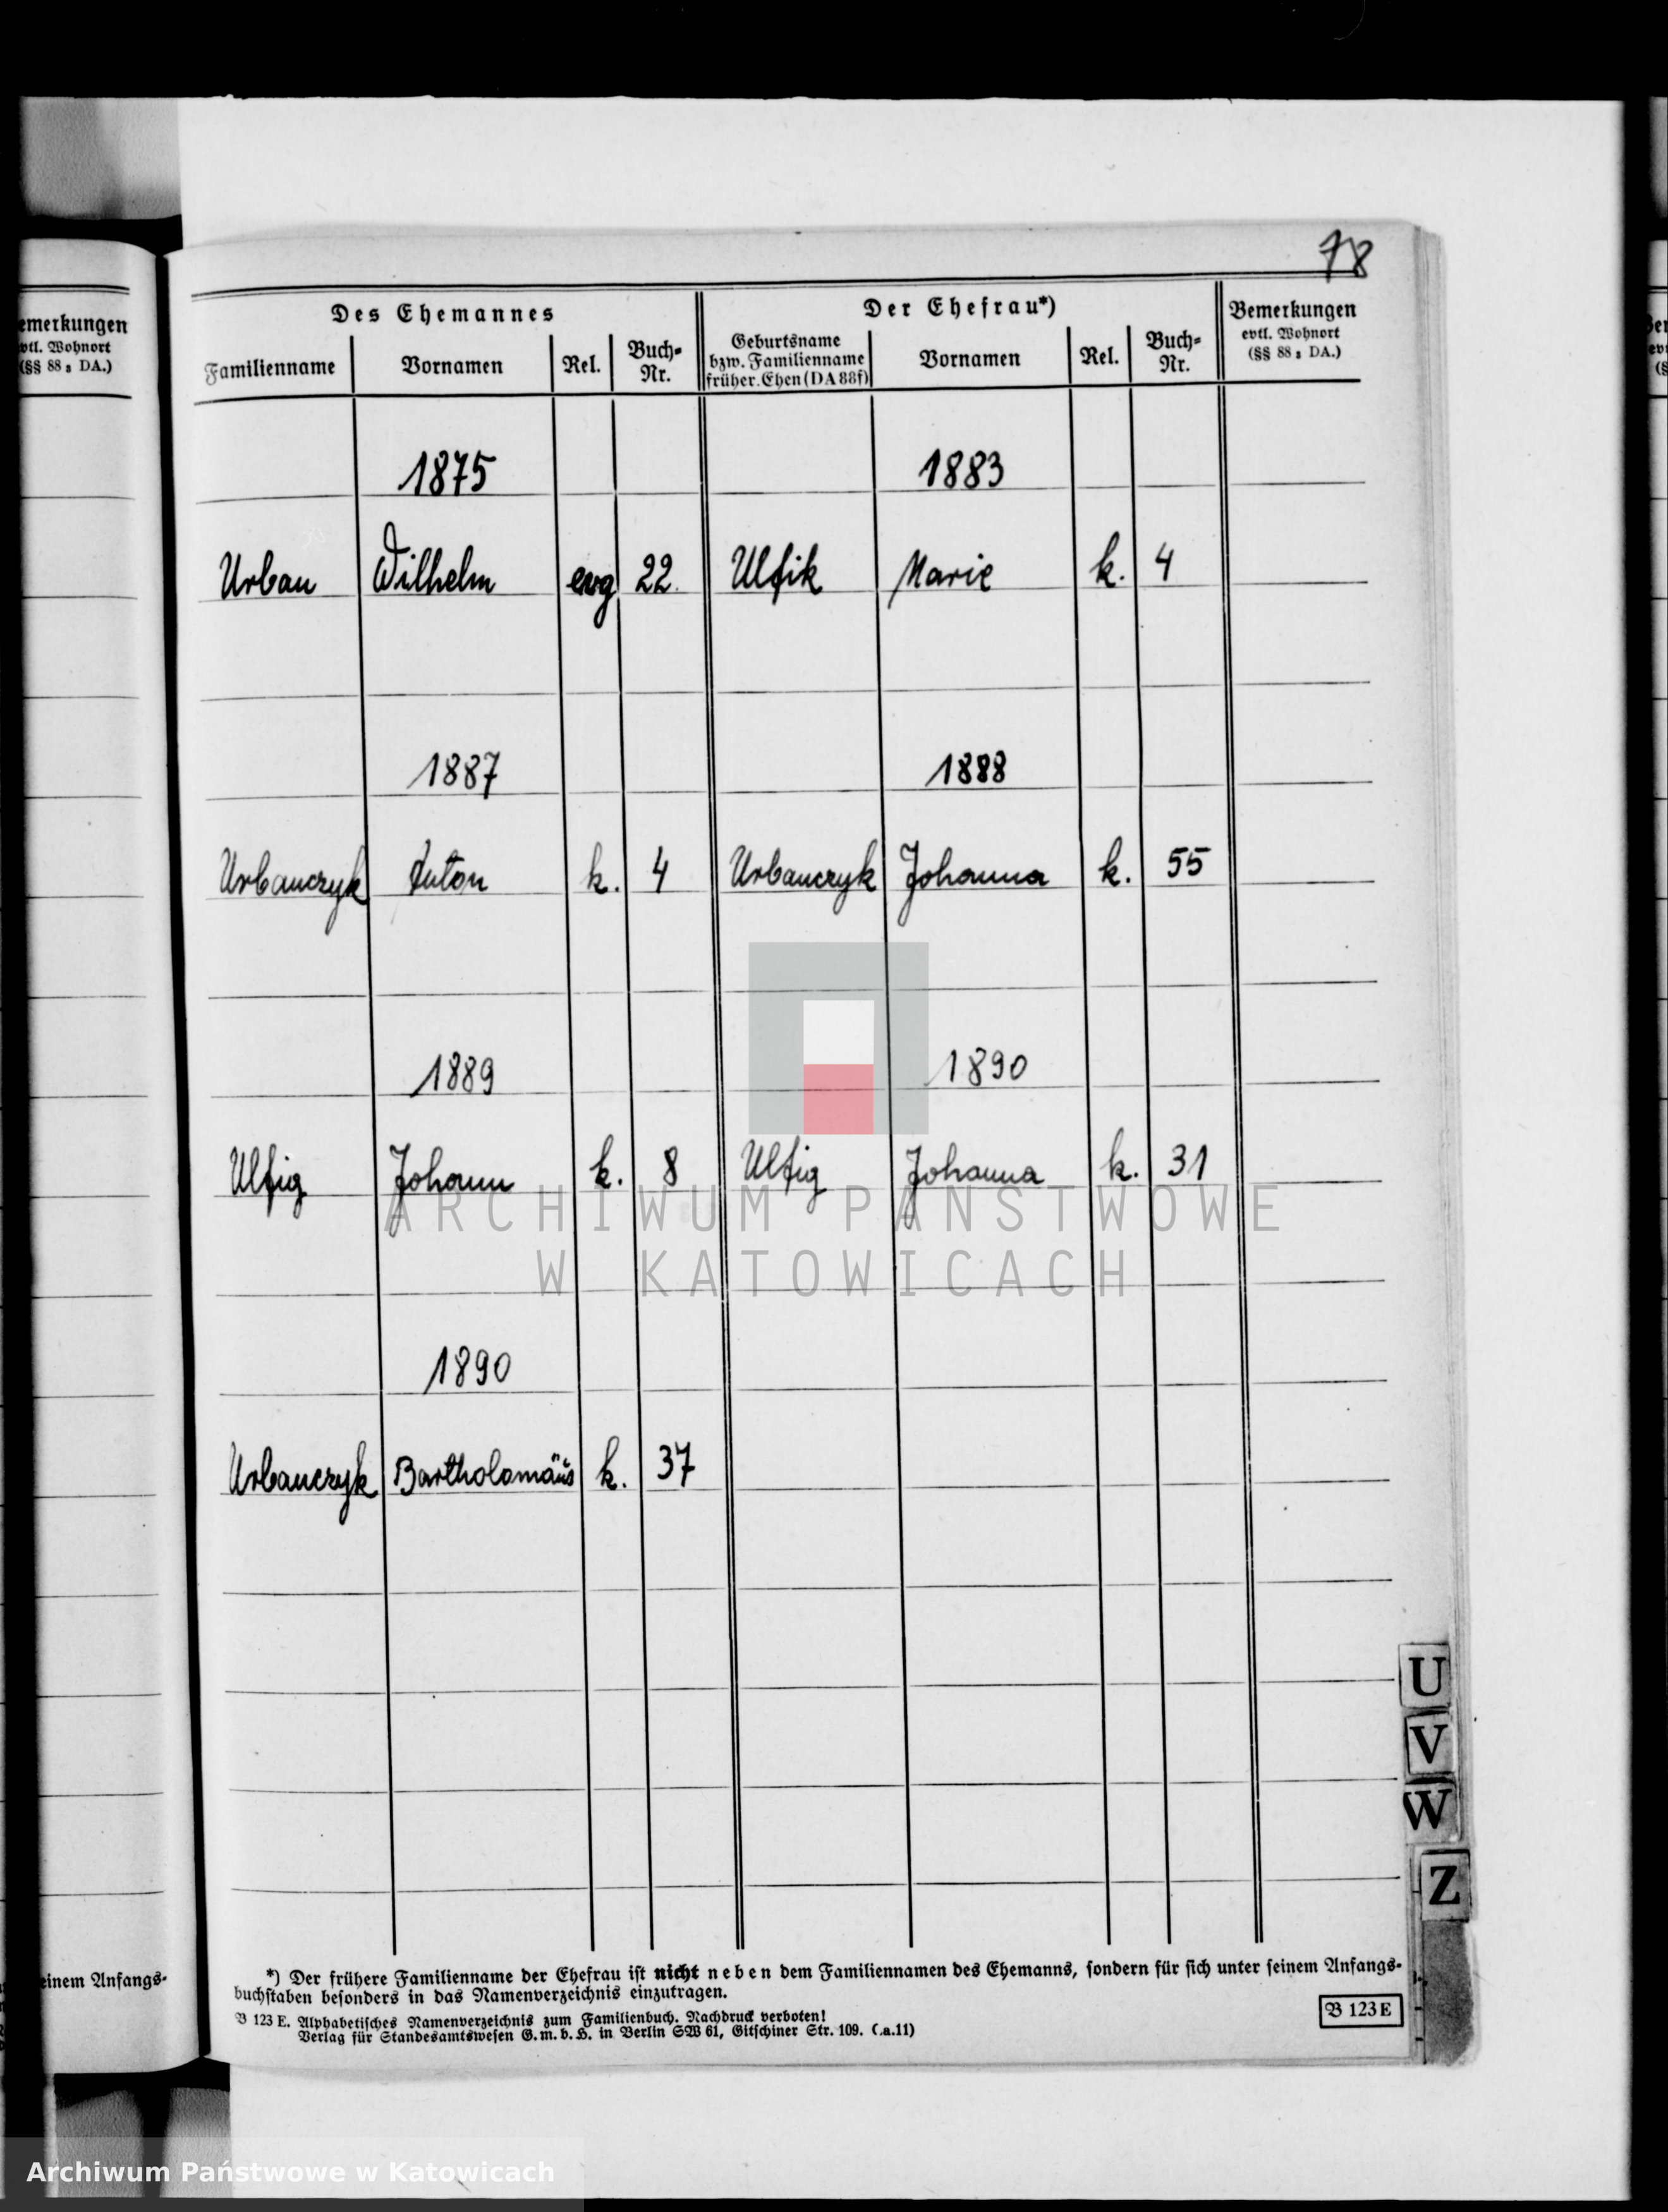 78
Des Ehemannes
Der Ehefrau*)
Bemerkungen
evtl. Wohnort
(§§ 88 ₈ DA.)
Familienname Vornamen Rel. Buch-Nr. Geburtsname bzw. Familienname früher. Ehen (DA 88f) Vornamen Rel. Buch-Nr.
1875 1883
Urban Wilhelm evg 22. Ulfik Marie k. 4
1887 1888
Urbanczyk Anton k. 4 Urbanczyk Johanna k. 55
1889 1890
Ulfig Johann k. 8 Ulfig Johanna k. 31
ARCHIWUM PAŃSTWOWE
W KATOWICACH
1890
Urbanczyk Bartholomäus k. 37
U
V
W
Z
*) Der frühere Familienname der Ehefrau ist nicht neben dem Familiennamen des Ehemanns, sondern für sich unter seinem Anfangs-
buchstaben besonders in das Namenverzeichnis einzutragen.
B 123 E. Alphabetisches Namenverzeichnis zum Familienbuch. Nachdruck verboten!
Verlag für Standesamtswesen G. m. b. H. in Berlin SW 61, Gitschiner Str. 109. (.a.11)
B 123 E
emerkungen
vtl. Wohnort
(§§ 88 ₈ DA.)
einem Anfangs-
Archiwum Państwowe w Katowicach